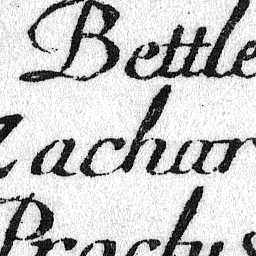 Bettle
Zachar
Practys